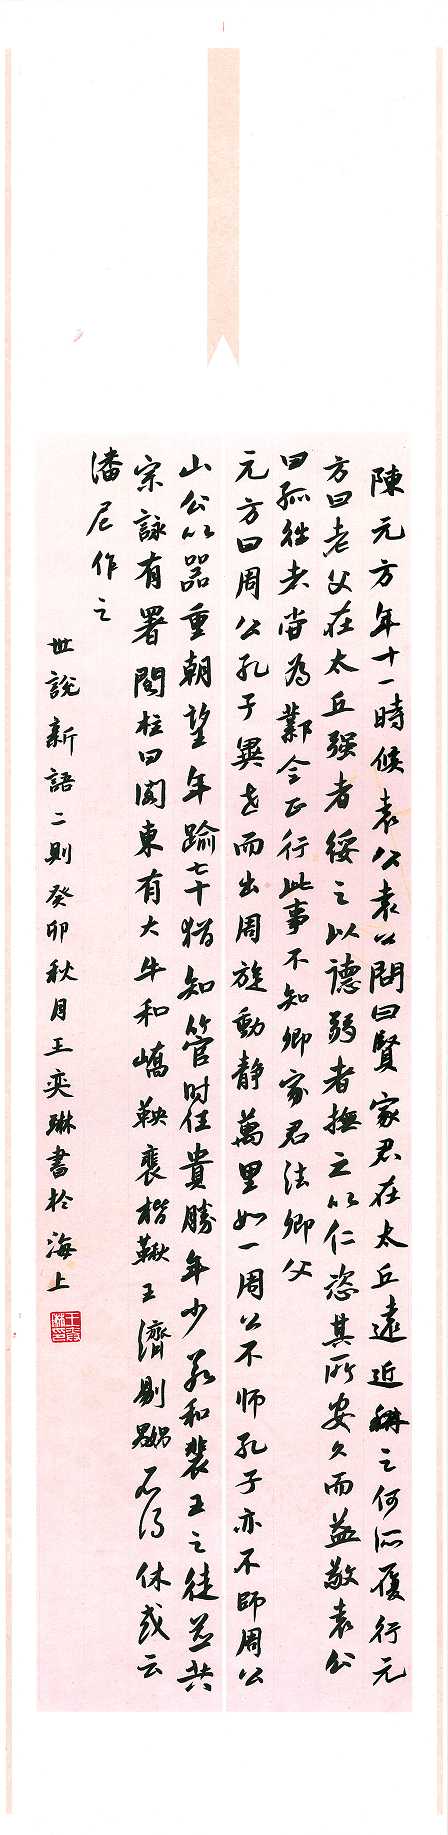 陳元方年十一時候袁公袁公問曰賢家君在太丘遠近稱之何所履行元
方曰老父在太丘强者綏之以德弱者撫之以仁恣其所安久而益敬袁公
曰孤往者嘗為鄴令正行此事不知卿家君法卿父
元方曰周公孔子異世而出周旋動靜萬里如一周公不师孔子亦不師周公
山公以器重朝望年踰七十猶知管时任貴勝年少若和裴王之徒並共
宗詠有署閣柱曰閣東有大牛和嶠鞅裴楷鞦王濟剔嬲不得休或云
潘尼作之
世説新語二則癸卯秋月王奕琳書於海上